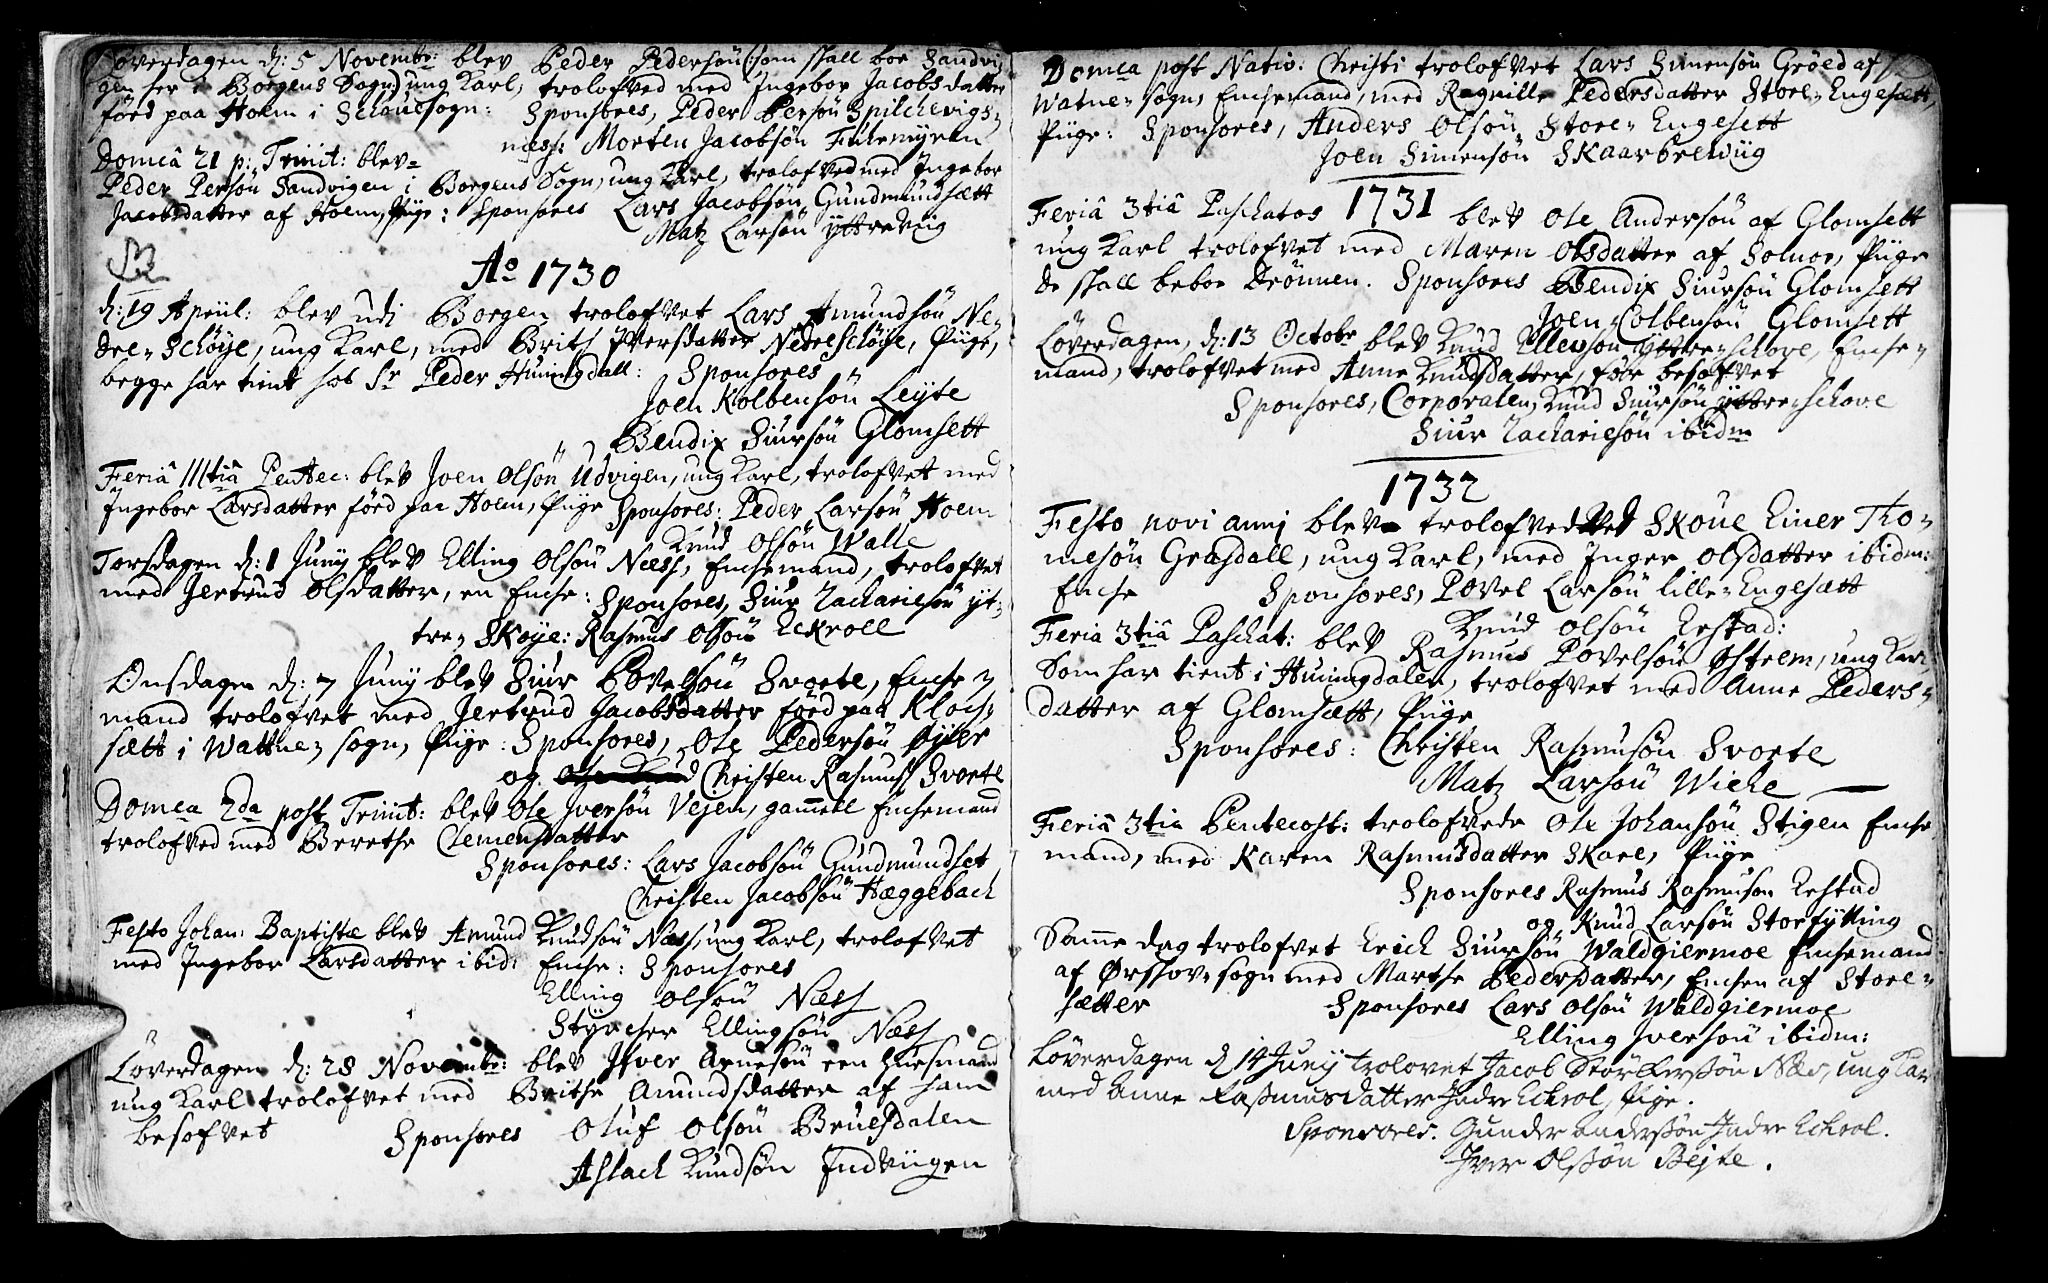 Løverdagen d: 5 Novembr: blev Peder Pedersøn (: som skall boe Sandvi
gen her i Borgens Sogn) ung Karl, trolofved med Ingebor Jacobsdatter
förd paa Holm i Schouesogn: Sponsores, Peder Persøn Spilchevigs=
næss: Morten Jacobsøn Furemyren
Domcâ 21 p: Trinit: blev=
Peder Persøn Sandvigen i Borgens Sogn, ung Karl, trolofved med Ingebor
Jacobsdatter af Holm, Piige: Sponsores Lars Jacobsøn Gundmundsætt
Matz Larsøn Yttrevug
Ao 1730
d: 19 Apriil: blev udj Borgen trolofvet Lars Amundsøn Ne=
dre=Schöye, ung Karl, med Brith Iversdatter Nedreschöye, Piige,
begge har tient hos Sr Peder Huningdall: Sponsores
Joen Kolbensön Leyte
Bendix Siursøn Glomsett
Feriâ IIItiâ Pentec: blev Joen Olsøn Udvigen, ung Karl, trolofvet med
Ingebor Larsdatter förd paa Holm, Piige Sponsores: Peder Larsøn Holm
Knud Olsøn Walle
Torsdagen d: 1 Junij blev Elling Olsøn Næss, Enchemand, trolofvet
med Jertrud Olsdatter, en Enche: Sponsores, Siur Zachariesøn Yt=
tre=Skoye: Rasmus Olsøn Eckroll
Onsdagen d: 7 Junij blev Siur Povelsøn Svorte, Enche=
mand trolofvet med Jertrud Jacobsdatter förd paa Kloch=
sætt i Wattne=sogn, Piige: Sponsores, Ole Pedersøn Øyer
og Christen Rasmuss Svorte
Domca 2da post Trinit: blev Ole Iversøn Vejen, gammell Enchemand
trolofved med Berethe Clemensdatter
Sponsores: Lars Jacobsøn Gundmundset
Christen Jacobsøn Hæggebach
Festo Johan: Baptistæ blev Amund Knudsøn Næss, ung Karl, trolofvet
med Ingebor Larsdatter ibid: Enche: Sponsores
Elling Olsøn Næss
Styrcher Ellingsøn Næss
Löverdagen d: 28 Novembr: blev Ifver Arnesøn een Huusmand
ung Karl trolofvet med Brithe Amundsdatter af ham
besofvet Sponsores Oluf Olsøn Bruesdalen
Aslach Knudsøn Indviigen
Domca post Nativ: Christi trolofvet Lars Simensøn Gröed af
Watne=sogn, Enchemand, med Ragnille Pedersdatter Store=Engesætt,
Piige: Sponsores, Anders Olsøn Store=Engesett
Joen Simensøn Skaarbrevüg
1731
Feriâ 3tiâ Paschatos blev Ole Andersøn af Glomsett
ung Karl trolofvet med Maren Olsdatter af Solnor, Piige
de skall beboe Drönnen. Sponsores Bendix Siursøn Glomsett
Joen Colbensøn Glomsett
Løverdagen, d: 13 Octobr blev Knud Ellensøn Yttre=schove, Enche=
mand, trolofvet med Anne Knudsdatter, før besofvet
Sponsores, Corporalen, Knud Siursøn Yttreschove
Siur Zachariesøn ibidm
1732
Festo novi annj blev trolofved ved Skoue Einer Tho=
mesøn Grasdall, ung Karl, med Inger Olsdatter ibidm:
Enche Sponsores, Povel Larsøn lille=Engesætt
Knud Olsøn Erstad:
Feria 3tiâ Paschat: blev Rasmus Povelsøn Østrem, ung Karl
Som har tient i Huningdalen, trolofvet med Anne Peders=
datter af Glomsætt, Piige
Sponsores: Christen Rasmusøn Svorte
Matz Larsøn Wiche
Feriâ 3tia Pentecost: trolofvede Ole Johansøn Stigen Enche
mand, med Karen Rasmusdatter Skare, Piige
Sponsores Rasmus Rasmusøn Erstad
og, Knud Larsøn Storfytting
Samme dag trolofvet Erich Siursøn Waldgiermoe Enchemand
af Ørschov=sogn med Marthe Pedersdatter, Enchen af Store=
sætter Sponsores Lars Olsøn Waldgiermoe
Elling Iversøn ibidm:
Löverdagen d 14 Junij trolovet Jacob Störkerssøn Næs, ung Kar
med Anne Rassmusdatter Indre Eckrol, Pige.
Sponsores. Gunder Anderssøn Indre Eckrol.
Iver Olssøn Bejte.